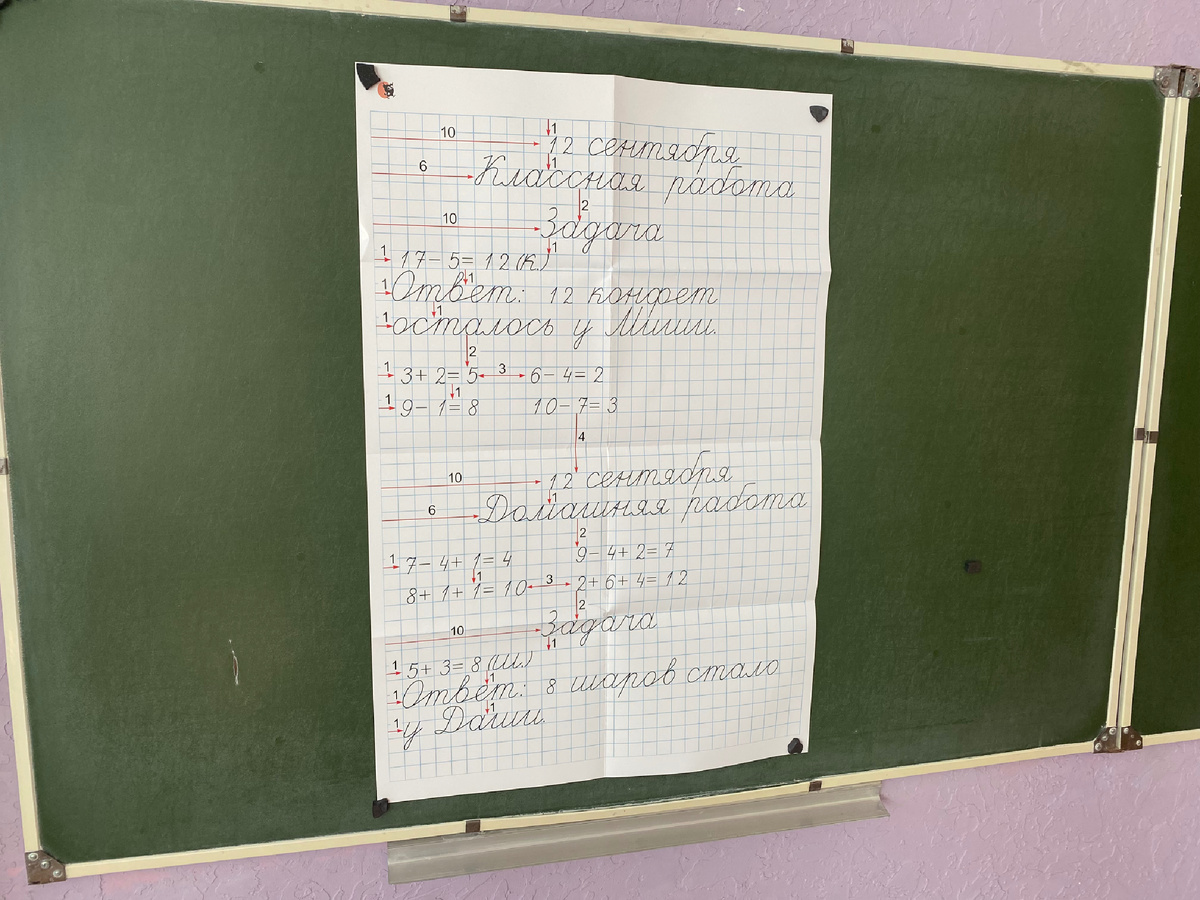 1
10 12 сентября
1
6 Классная работа
2
10 Задача
1
1 17 - 5 = 12 (к)
1
1 Ответ: 12 конфет
1
1 осталось у Миши.
2
1 3 + 2 = 5 3 6 - 4 = 2
1
1 9 - 1 = 8 10 - 7 = 3
4
10 12 сентября
1
6 Домашняя работа
2
1 7 - 4 + 1 = 4 9 - 4 + 2 = 7
1
8 + 1 + 1 = 10 3 2 + 6 + 4 = 12
2
10 Задача
1
1 5 + 3 = 8 (ш.)
1
1 Ответ: 8 шаров стало
1
1 у Даши.